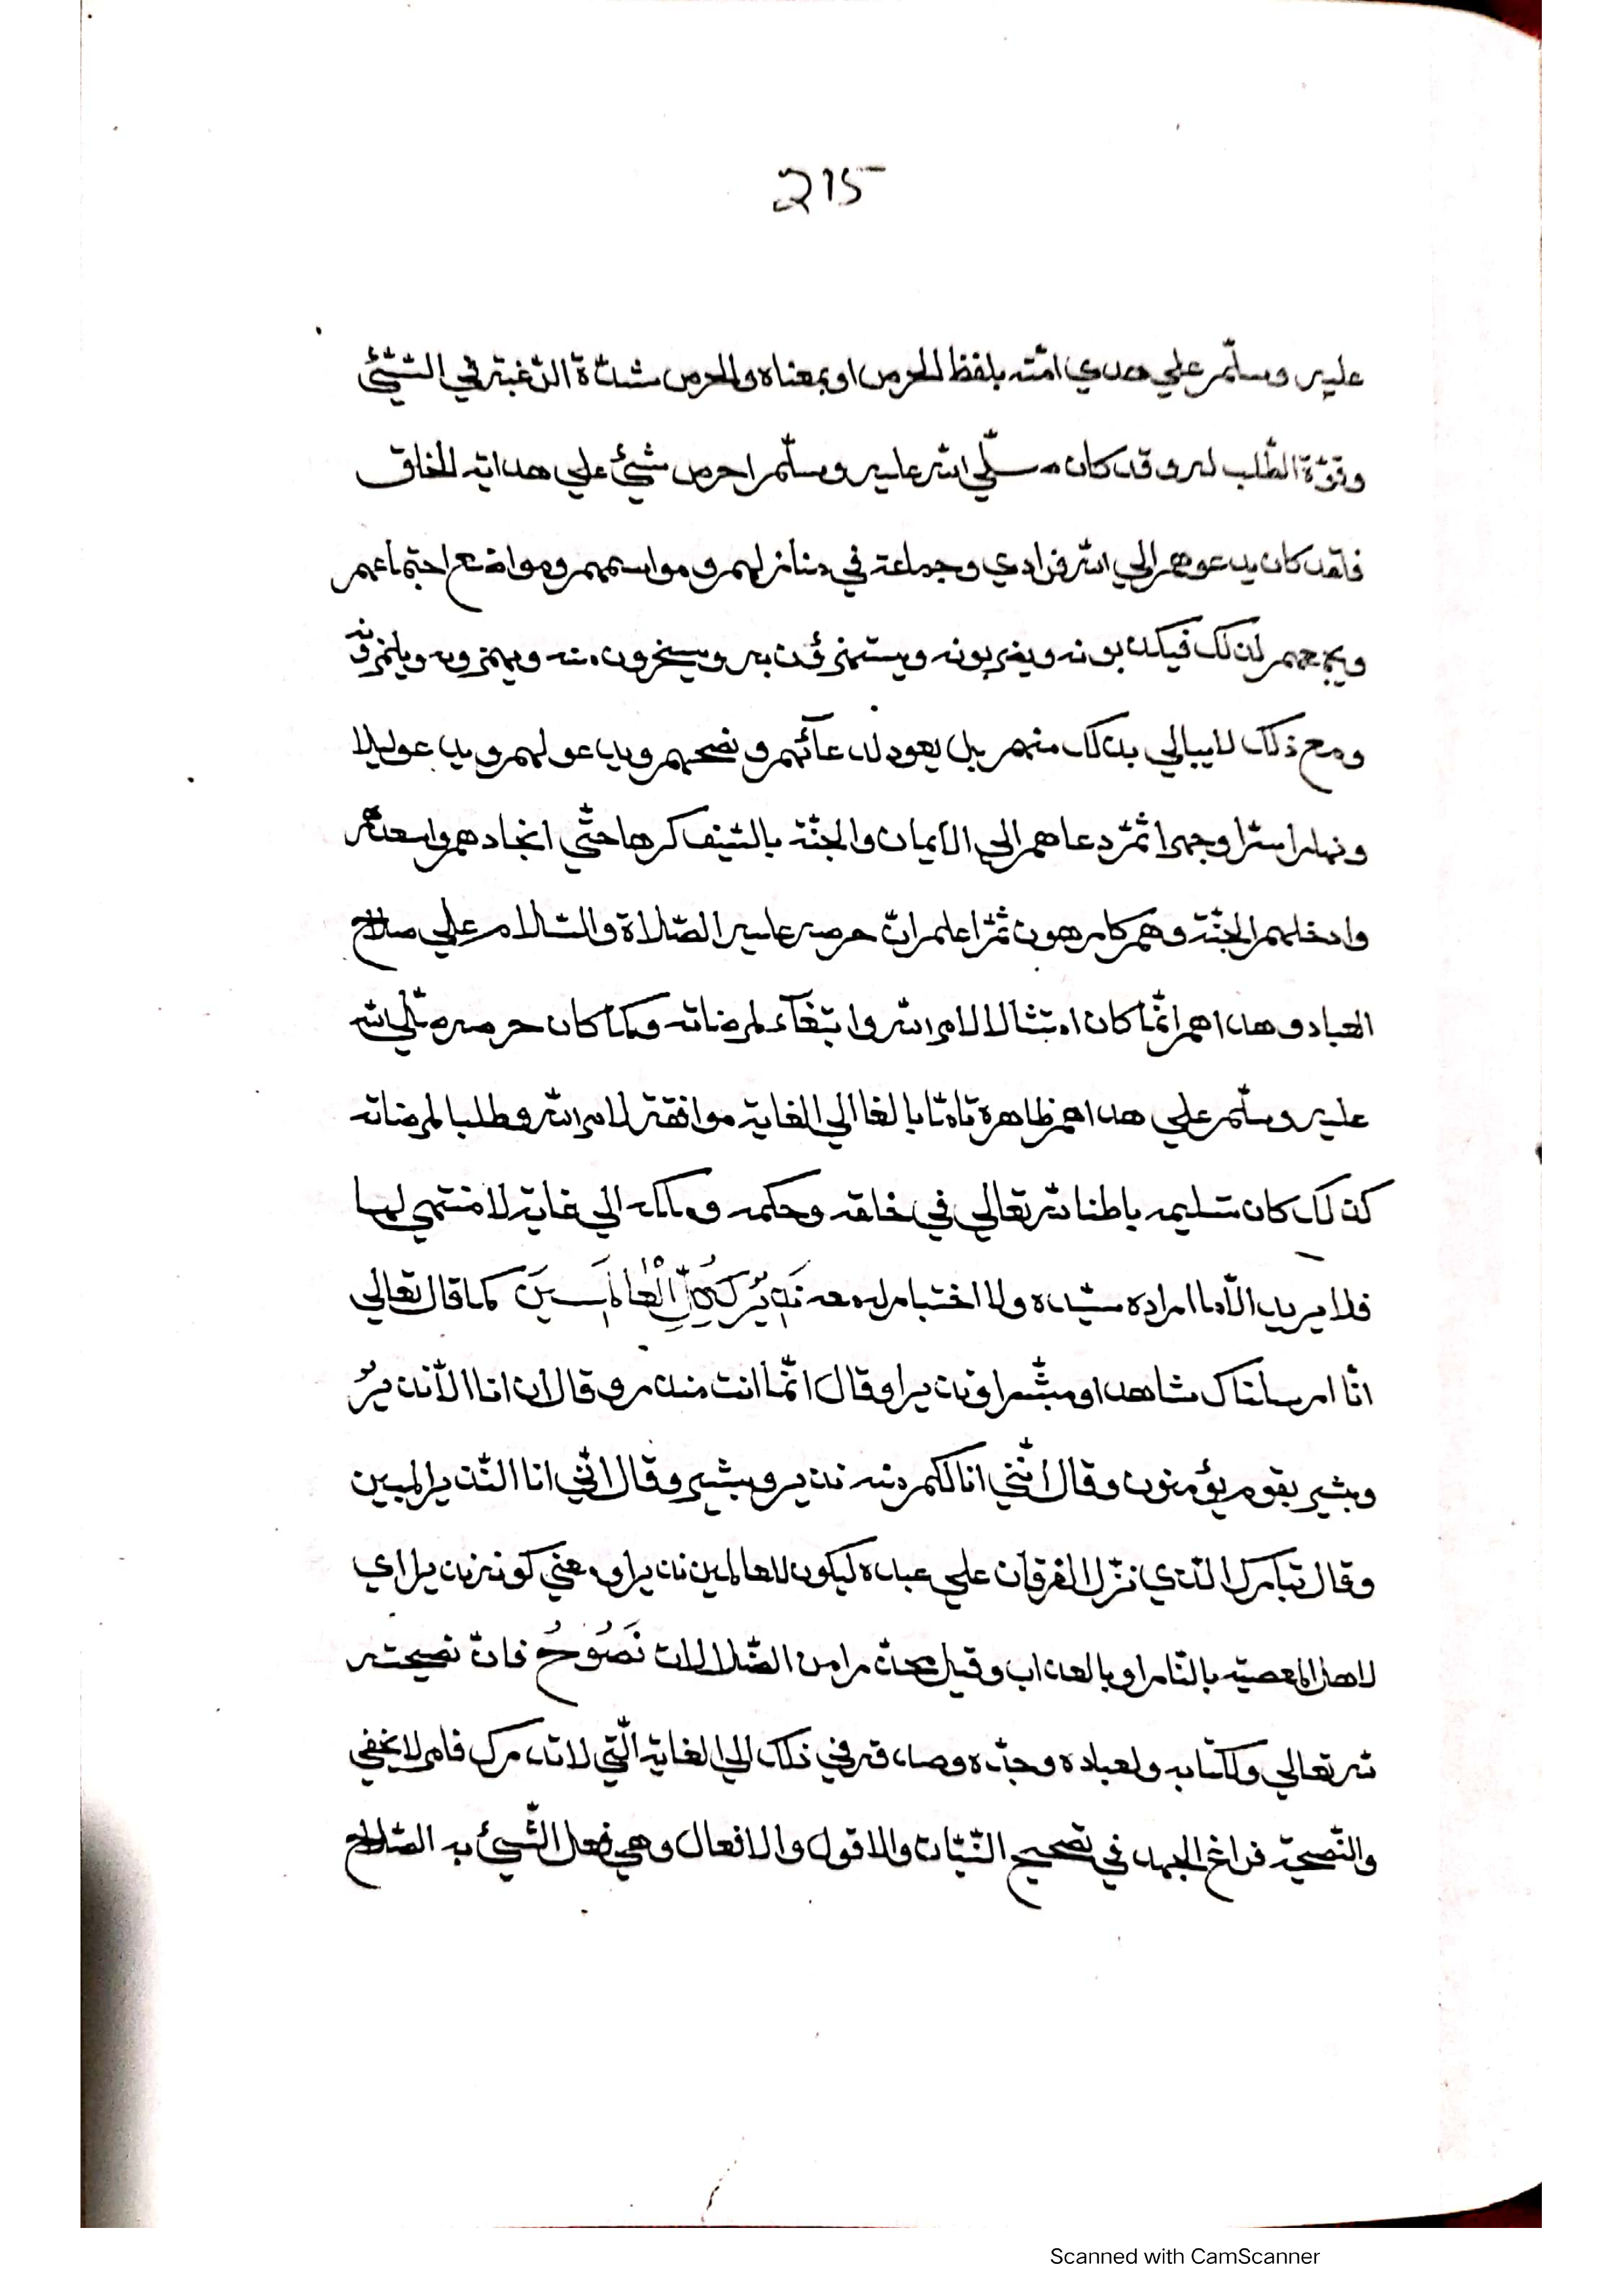 215
عليه وسلّم علي هدي امّته بلفظ الحرص او بمعناه والحرص شدّة الرّغبة في الشّيئ
وقوّة الطّلب له وقد كان صلّي الله عليه وسلّم احرص شيئ علي هداية الخلق
فلقد كان يدعوهم الي الله فرادي وجماعة في منازلهم ومواسمهم ومواضع اجتماعهم
لذلك فيكذبونه ويضربونه ويستهزؤن به ويسخرون منه ويهمزونه ويلمزونه
ومع ذلك لايبالي بذلك منهم بل يعود لدعآئهم ونصحهم ويدعو لهم ويدعو ليلا
ونهارا سرّا وجهرا ثمّ دعاهم الي الايمان والجنّة بالسّيف كرها حتّي انجادهم واسعدهم
وادخلهم الجنّة وهم كارهون ثمّ اعلم انّ حرصه عليه الصّلاة والسّلام علي صلاح
العباد وهداهم انّما كان امتثالا لامر الله وابتغآء لمرضاته وكما كان حرصه صلّي الله
عليه وسلّم علي هداهم ظاهره تامّا بالغا الي الغاية موافقة لامر الله وطلبا لمرضاته
كذلك كان تسليمه باطنا لله تعالي في خلقه وحكمه وملكه الي غاية لا منتهي لها
فلا يريد الّا ما اراده سيّده ولا اختيار له معه نَذِيرُ كُلِّ الْعَالَمِينَ كما قال تعالي
انّا ارسلناك شاهدا ومبشّرا ونذيرا وقال انّما انت منذر وقال ان انا الّا نذيرٌ
وبشير لقوم يؤمنون وقال انّني انا لكم منه نذير وبشير وقال انّي انا النّذير المبين
وقال تبارك الّذي نزّل الفرقان علي عبده ليكون للعالمين نذيرا ومعني كونه نذيرا اي
لاهل المعصية بالنّار او بالعذاب وقيل محذّرا من الضّلالات نَصُوحُ فانّ نصيحته
لله تعالي ولكتابه ولعباده وجدّه وصدقه في ذلك الي الغاية الّتي لا تدرك فامر لا يخفي
والنّصيحة فراغ الجهد في تصحيح النّيّات والاقول والافعال وهي فعل الشّيئ به الصّلاح
Scanned with CamScanner